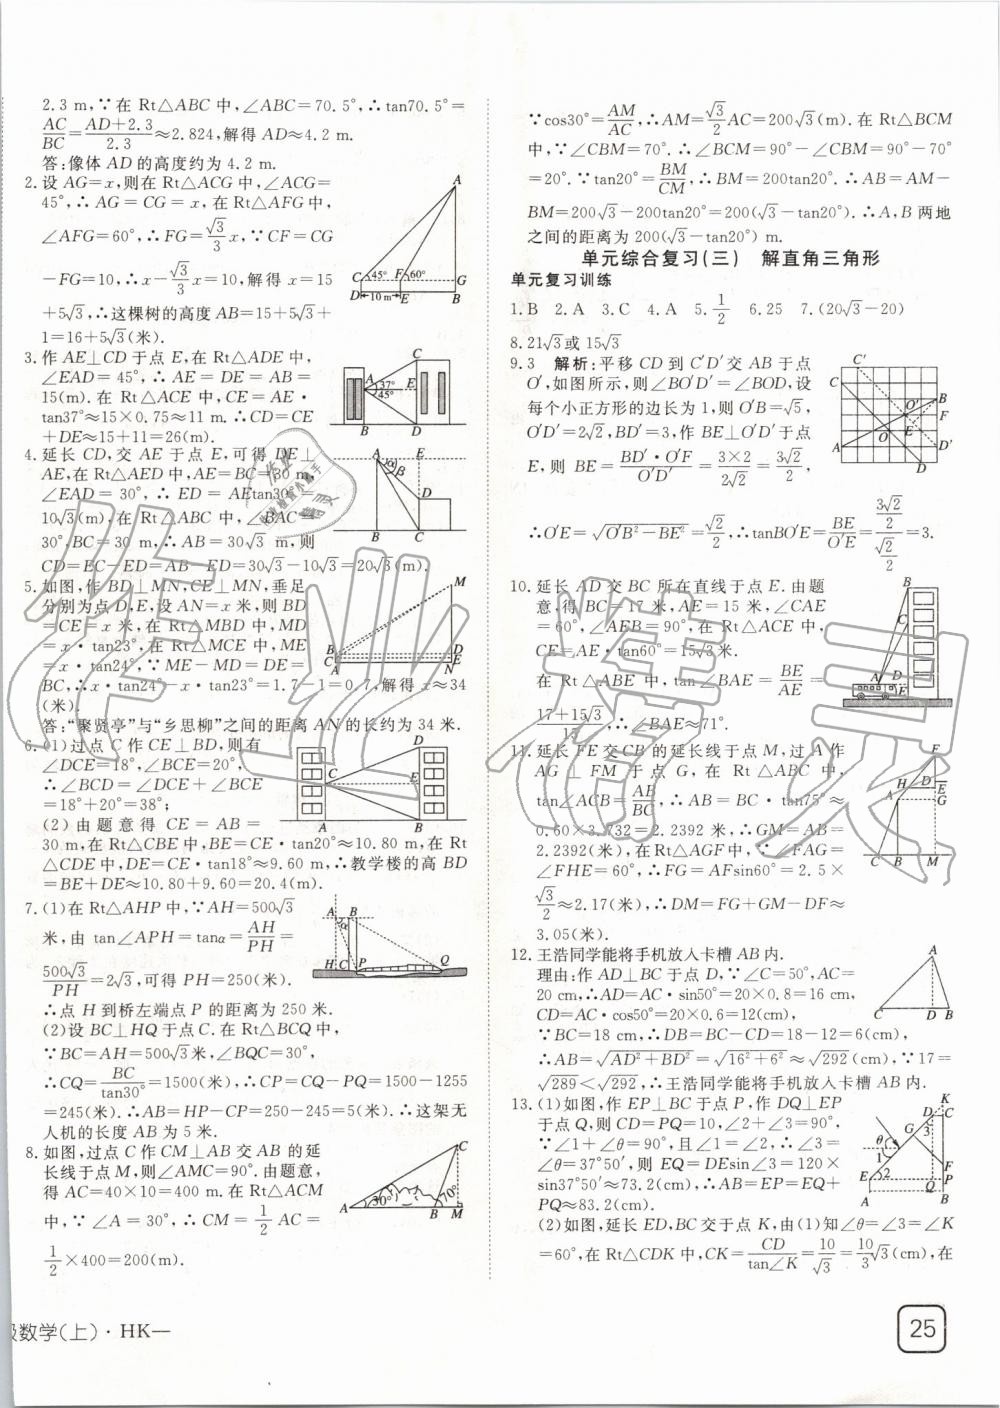 2.3 m,∵在 Rt△ABC 中,∠ABC=70.5°,∴tan70.5°=
AC/BC=(AD+2.3)/2.3≈2.824,解得 AD≈4.2 m.
答:像体 AD 的高度约为 4.2 m.
2.设 AG=x,则在 Rt△ACG 中,∠ACG=
45°,∴AG=CG=x,在 Rt△AFG 中,
∠AFG=60°,∴FG=√3/3 x,∵CF=CG
−FG=10,∴x−√3/3 x=10,解得 x=15
+5√3,∴这棵树的高度 AB=15+5√3+
1=16+5√3(米).
3.作 AE⊥CD 于点 E,在 Rt△ADE 中,
∠EAD=45°,∴AE=DE=AB=
15(m).在 Rt△ACE 中,CE=AE·
tan37°≈15×0.75≈11 m.∴CD=CE
+DE≈15+11=26(m).
4.延长 CD,交 AE 于点 E,可得 DE⊥
AE,在 Rt△AED 中,AE=BC=30 m,
∠EAD=30°,∴ED=AEtan30°=
10√3(m),在 Rt△ABC 中,∠BAC=
30°,BC=30 m,∴AB=30√3 m,则
CD=EC−ED=AB−ED=30√3−10√3=20√3(m).
5.如图,作 BD⊥MN,CE⊥MN,垂足
分别为点 D,E,设 AN=x 米,则 BD
=CE=x 米,在 Rt△MBD 中,MD
=x·tan23°,在 Rt△MCE 中,ME
=x·tan24°,∵ME−MD=DE=
BC,∴x·tan24°−x·tan23°=1.7−1=0.7,解得 x≈34
(米).
答:“聚贤亭”与“乡思柳”之间的距离 AN 的长约为 34 米.
6.(1)过点 C 作 CE⊥BD,则有
∠DCE=18°,∠BCE=20°,
∴∠BCD=∠DCE+∠BCE
=18°+20°=38°;
(2)由题意得 CE=AB=
30 m,在 Rt△CBE 中,BE=CE·tan20°≈10.80 m,在 Rt
△CDE 中,DE=CE·tan18°≈9.60 m,∴教学楼的高 BD
=BE+DE≈10.80+9.60≈20.4(m).
7.(1)在 Rt△AHP 中,∵AH=500√3
米,由 tan∠APH=tanα=AH/PH=
500√3/PH=2√3,可得 PH=250(米).
∴点 H 到桥左端点 P 的距离为 250 米.
(2)设 BC⊥HQ 于点 C.在 Rt△BCQ 中,
∵BC=AH=500√3米,∠BQC=30°,
∴CQ=BC/tan30°=1500(米),∴CP=CQ−PQ=1500−1255
=245(米).∴AB=HP−CP=250−245=5(米).∴这架无
人机的长度 AB 为 5 米.
8.如图,过点 C 作 CM⊥AB 交 AB 的延
长线于点 M,则∠AMC=90°.由题意,
得 AC=40×10=400 m.在 Rt△ACM
中,∵∠A=30°,∴CM=1/2 AC=
1/2×400=200(m).
∵cos30°=AM/AC,∴AM=√3/2 AC=200√3(m).在 Rt△BCM
中,∵∠CBM=70°.∴∠BCM=90°−∠CBM=90°−70°
=20°.∵tan20°=BM/CM,∴BM=200tan20°.∴AB=AM−
BM=200√3−200tan20°=200(√3−tan20°).∴A,B 两地
之间的距离为 200(√3−tan20°) m.
单元综合复习(三) 解直角三角形
单元复习训练
1.B 2.A 3.C 4.A 5.1/2 6.25 7.(20√3−20)
8.21√3或 15√3
9.3 解析:平移 CD 到 C′D′交 AB 于点
O′,如图所示,则∠BO′D′=∠BOD,设
每个小正方形的边长为 1,则 O′B=√5,
O′D′=2√2,BD′=3,作 BE⊥O′D′于点
E,则 BE=BD′·O′F/O′D′=3×2/2√2=3√2/2,
∴O′E=√(O′B²−BE²)=√2/2,∴tanBO′E=BE/O′E=(3√2/2)/(√2/2)=3.
10.延长 AD 交 BC 所在直线于点 E.由题
意,得 BC=17 米,AE=15 米,∠CAE
=60°,∠AEB=90°,在 Rt△ACE 中,
CE=AE·tan60°=15√3米.
在 Rt△ABE 中,tan∠BAE=BE/AE=
(17+15√3)/17,∴∠BAE≈71°.
11.延长 FE 交 CB 的延长线于点 M,过 A 作
AG⊥FM 于点 G,在 Rt△ABC 中,
tan∠ACB=AB/BC,∴AB=BC·tan75°≈
0.60×3.732=2.2392(米).∴GM=AB=
2.2392(米),在 Rt△AGF 中,∵∠FAG=
∠FHE=60°,∴FG=AFsin60°=2.5×
√3/2≈2.17(米),∴DM=FG+GM−DF≈
3.05(米).
12.王浩同学能将手机放入卡槽 AB内.
理由:作 AD⊥BC 于点 D,∵∠C=50°,AC=
20 cm,∴AD=AC·sin50°=20×0.8=16 cm,
CD=AC·cos50°=20×0.6=12(cm),
∵BC=18 cm,∴DB=BC−CD=18−12=6(cm),
∴AB=√(AD²+BD²)=√(16²+6²)≈√292(cm),∵17=
√289<√292,∴王浩同学能将手机放入卡槽 AB 内.
13.(1)如图,作 EP⊥BC于点 P,作 DQ⊥EP
于点 Q,则 CD=PQ=10,∠2+∠3=90°,
∵∠1+∠θ=90°,且∠1=∠2,∴∠3=
∠θ=37°50′,则 EQ=DEsin∠3=120×
sin37°50′≈73.2(cm),∴AB=EP=EQ+
PQ≈83.2(cm).
(2)如图,延长 ED,BC 交于点 K,由(1)知∠θ=∠3=∠K
=60°,在 Rt△CDK 中,CK=CD/tan∠K=10/√3=10/3 √3(cm),在
级数学(上)·HK一
25